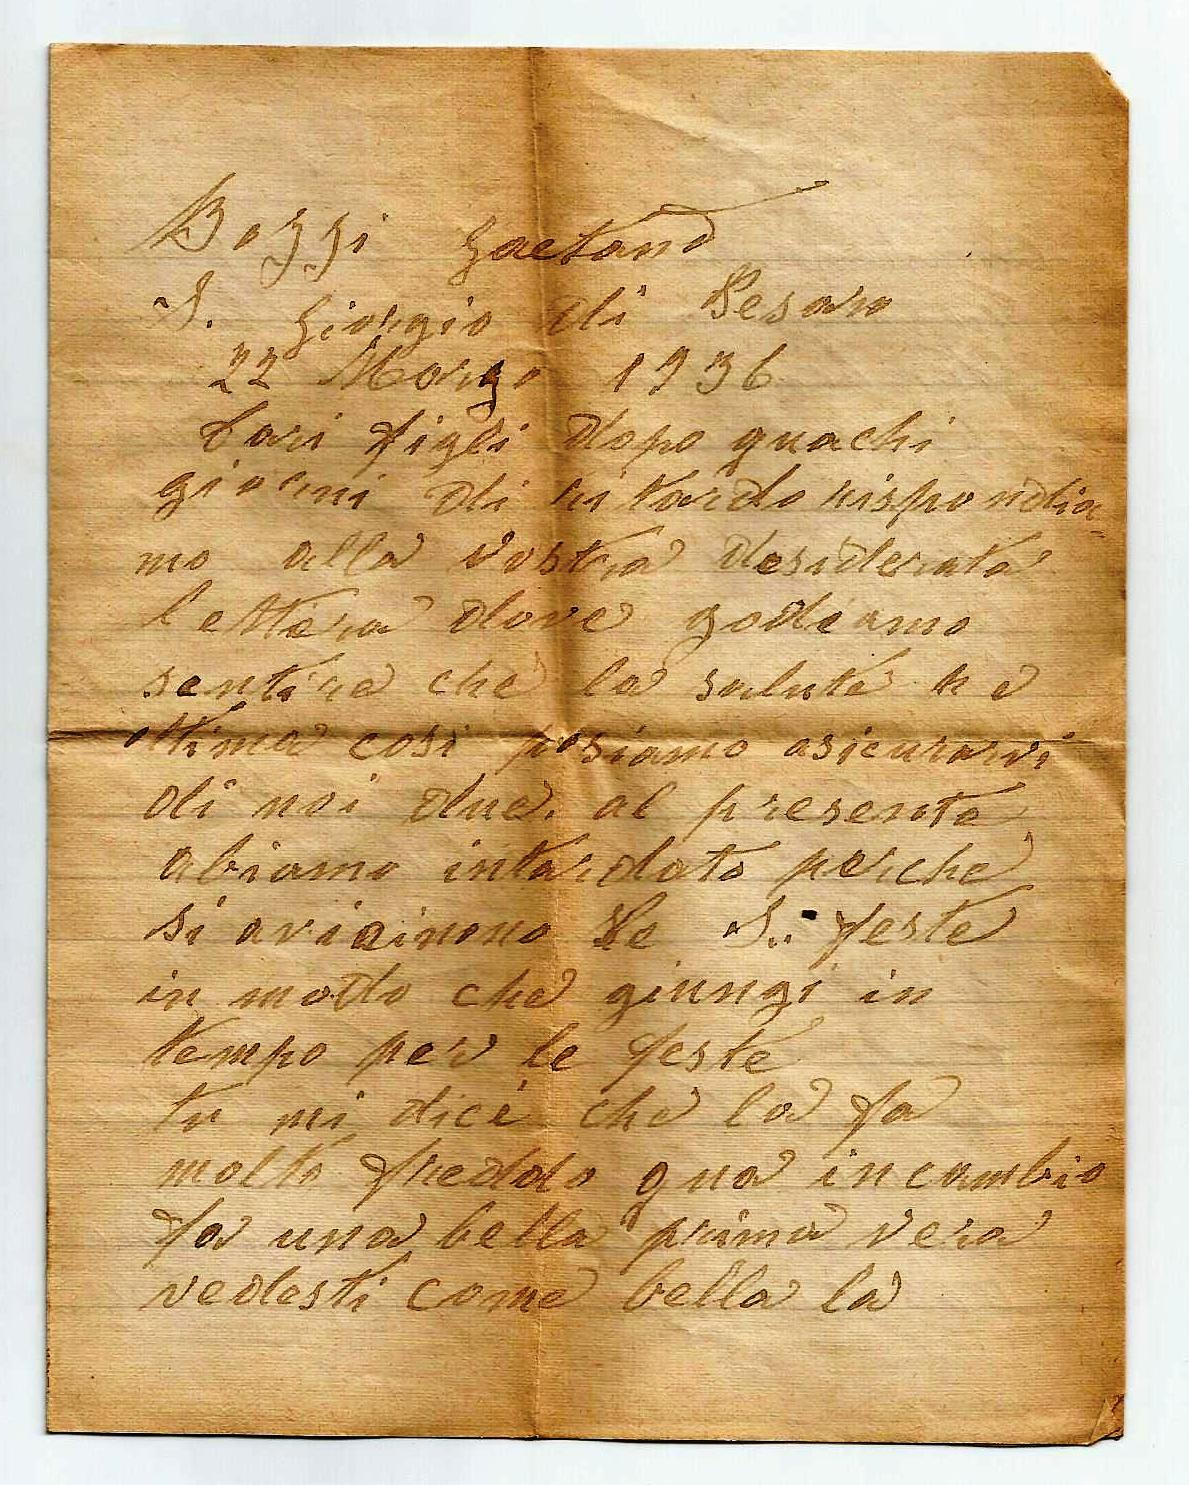 Bozzi Gaetano
S. Giorgio di Pesaro
22 Marzo 1936
Cari figli dopo quachi
giorni di ritardo rispondia-
mo alla vostra desiderata
lettera dove godiamo
sentire che la salute he
ottima cosi posiamo asicurarvi
di noi due. al presente
abiamo intardato perche
si avicinono le S.. feste
in modo che giungi in
tempo per le feste
tu mi dici che la fa
molto freddo qua incambio
fa una bella prima vera
vedesti come bella la